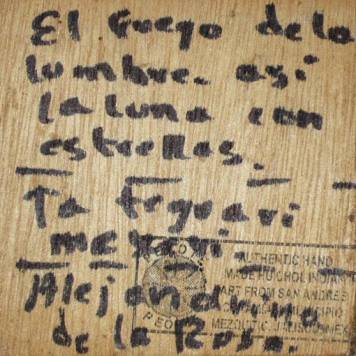 El Fuego de la
lumbre. así
la luna con
estrellas.
Ta
Alejandrino
de la Rosa.
AUTHENTIC HAND
MADE HUICHOL INDIAN
ART FROM SAN ANDRES
MEZQUITIC, JALISCO, MEX